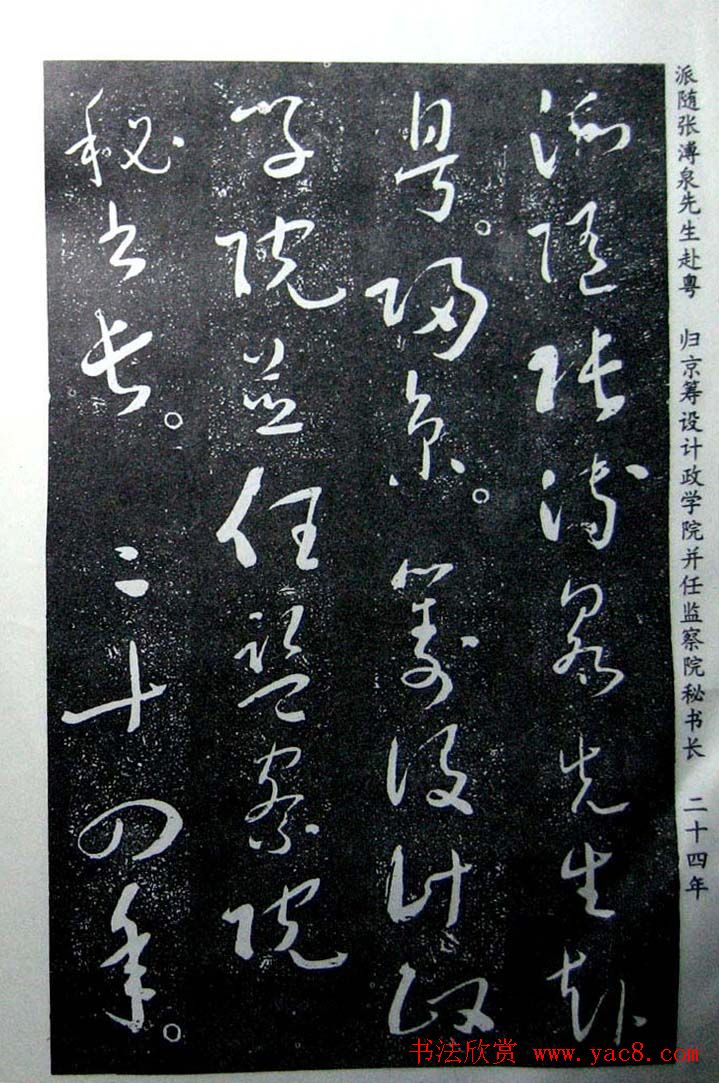 派随张溥泉先生赴粤 归京筹设计政学院并任监察院秘书长 二十四年
派隨張溥泉先生赴
粤。歸京。籌設計政
學院並任監察院
秘書長。二十四年。
书法欣赏 www.yac8.com